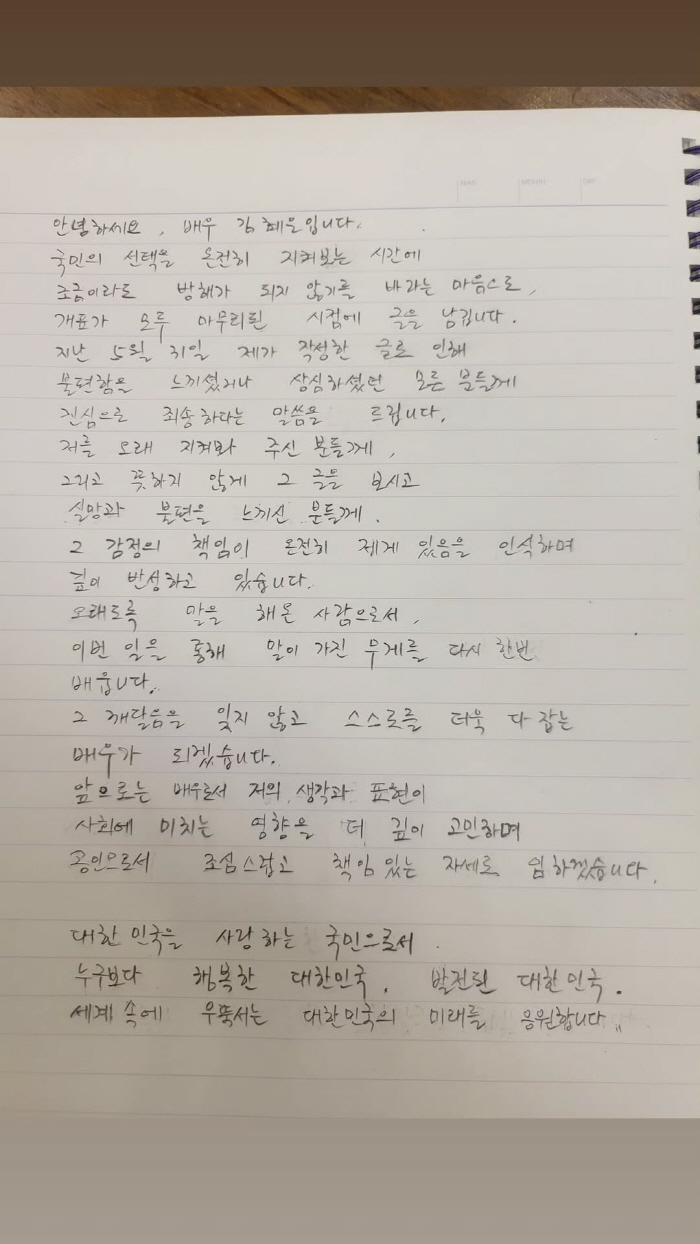 안녕하세요, 배우 김혜은입니다.
국민의 선택을 온전히 지켜보는 시간에
조금이라도 방해가 되지 않기를 바라는 마음으로,
개표가 모두 마무리된 시점에 글을 남깁니다.
지난 5월 31일 제가 작성한 글로 인해
불편함을 느끼셨거나 상심하셨던 모든 분들께
진심으로 죄송하다는 말씀을 드립니다.
저를 오래 지켜봐 주신 분들께,
그리고 뜻하지 않게 그 글을 보시고
실망과 불편을 느끼신 분들께.
그 감정의 책임이 온전히 제게 있음을 인식하며
깊이 반성하고 있습니다.
오래도록 말을 해온 사람으로서,
이번 일을 통해 말이 가진 무게를 다시 한번
배웁니다.
그 깨달음을 잊지 않고 스스로를 더욱 다잡는
배우가 되겠습니다.
앞으로는 배우로서 저의 생각과 표현이
사회에 미치는 영향을 더 깊이 고민하며
공인으로서 조심스럽고 책임 있는 자세로 임하겠습니다.
대한민국을 사랑하는 국민으로서.
누구보다 행복한 대한민국, 발전된 대한민국.
세계 속에 우뚝서는 대한민국의 미래를 응원합니다..